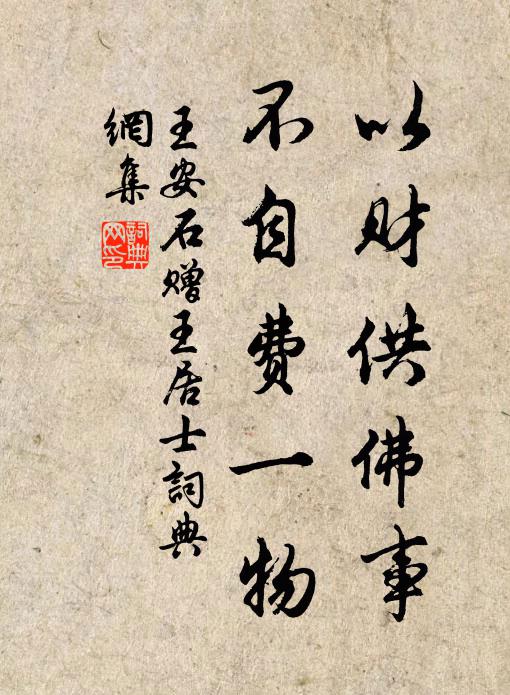 以财供佛事
不自费一物
王安石赠王居士詞典
網集
詞典
网印